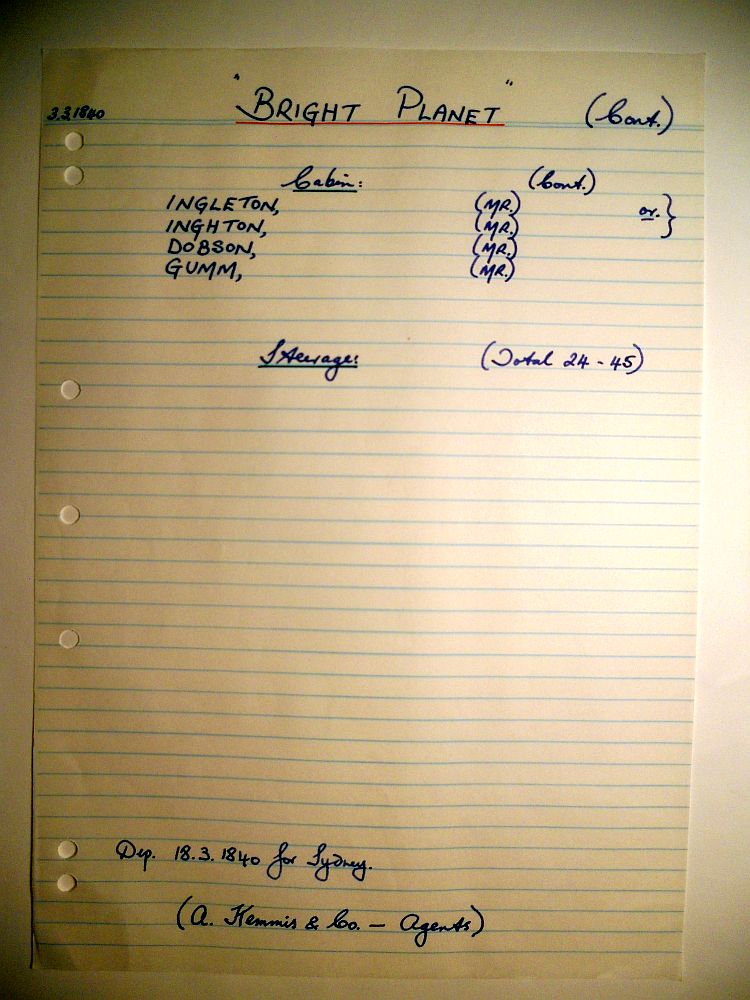 3.3.1840 "BRIGHT PLANET" (Cont.)
Cabin: (Cont.)
INGLETON, (MR.) or. }
INGHTON, (MR.)
DOBSON, (MR.)
GUMM, (MR.)
Steerage: (Total 24 - 45)
Dep. 18.3.1840 for Sydney.
(A. Kemmis & Co. — Agents)